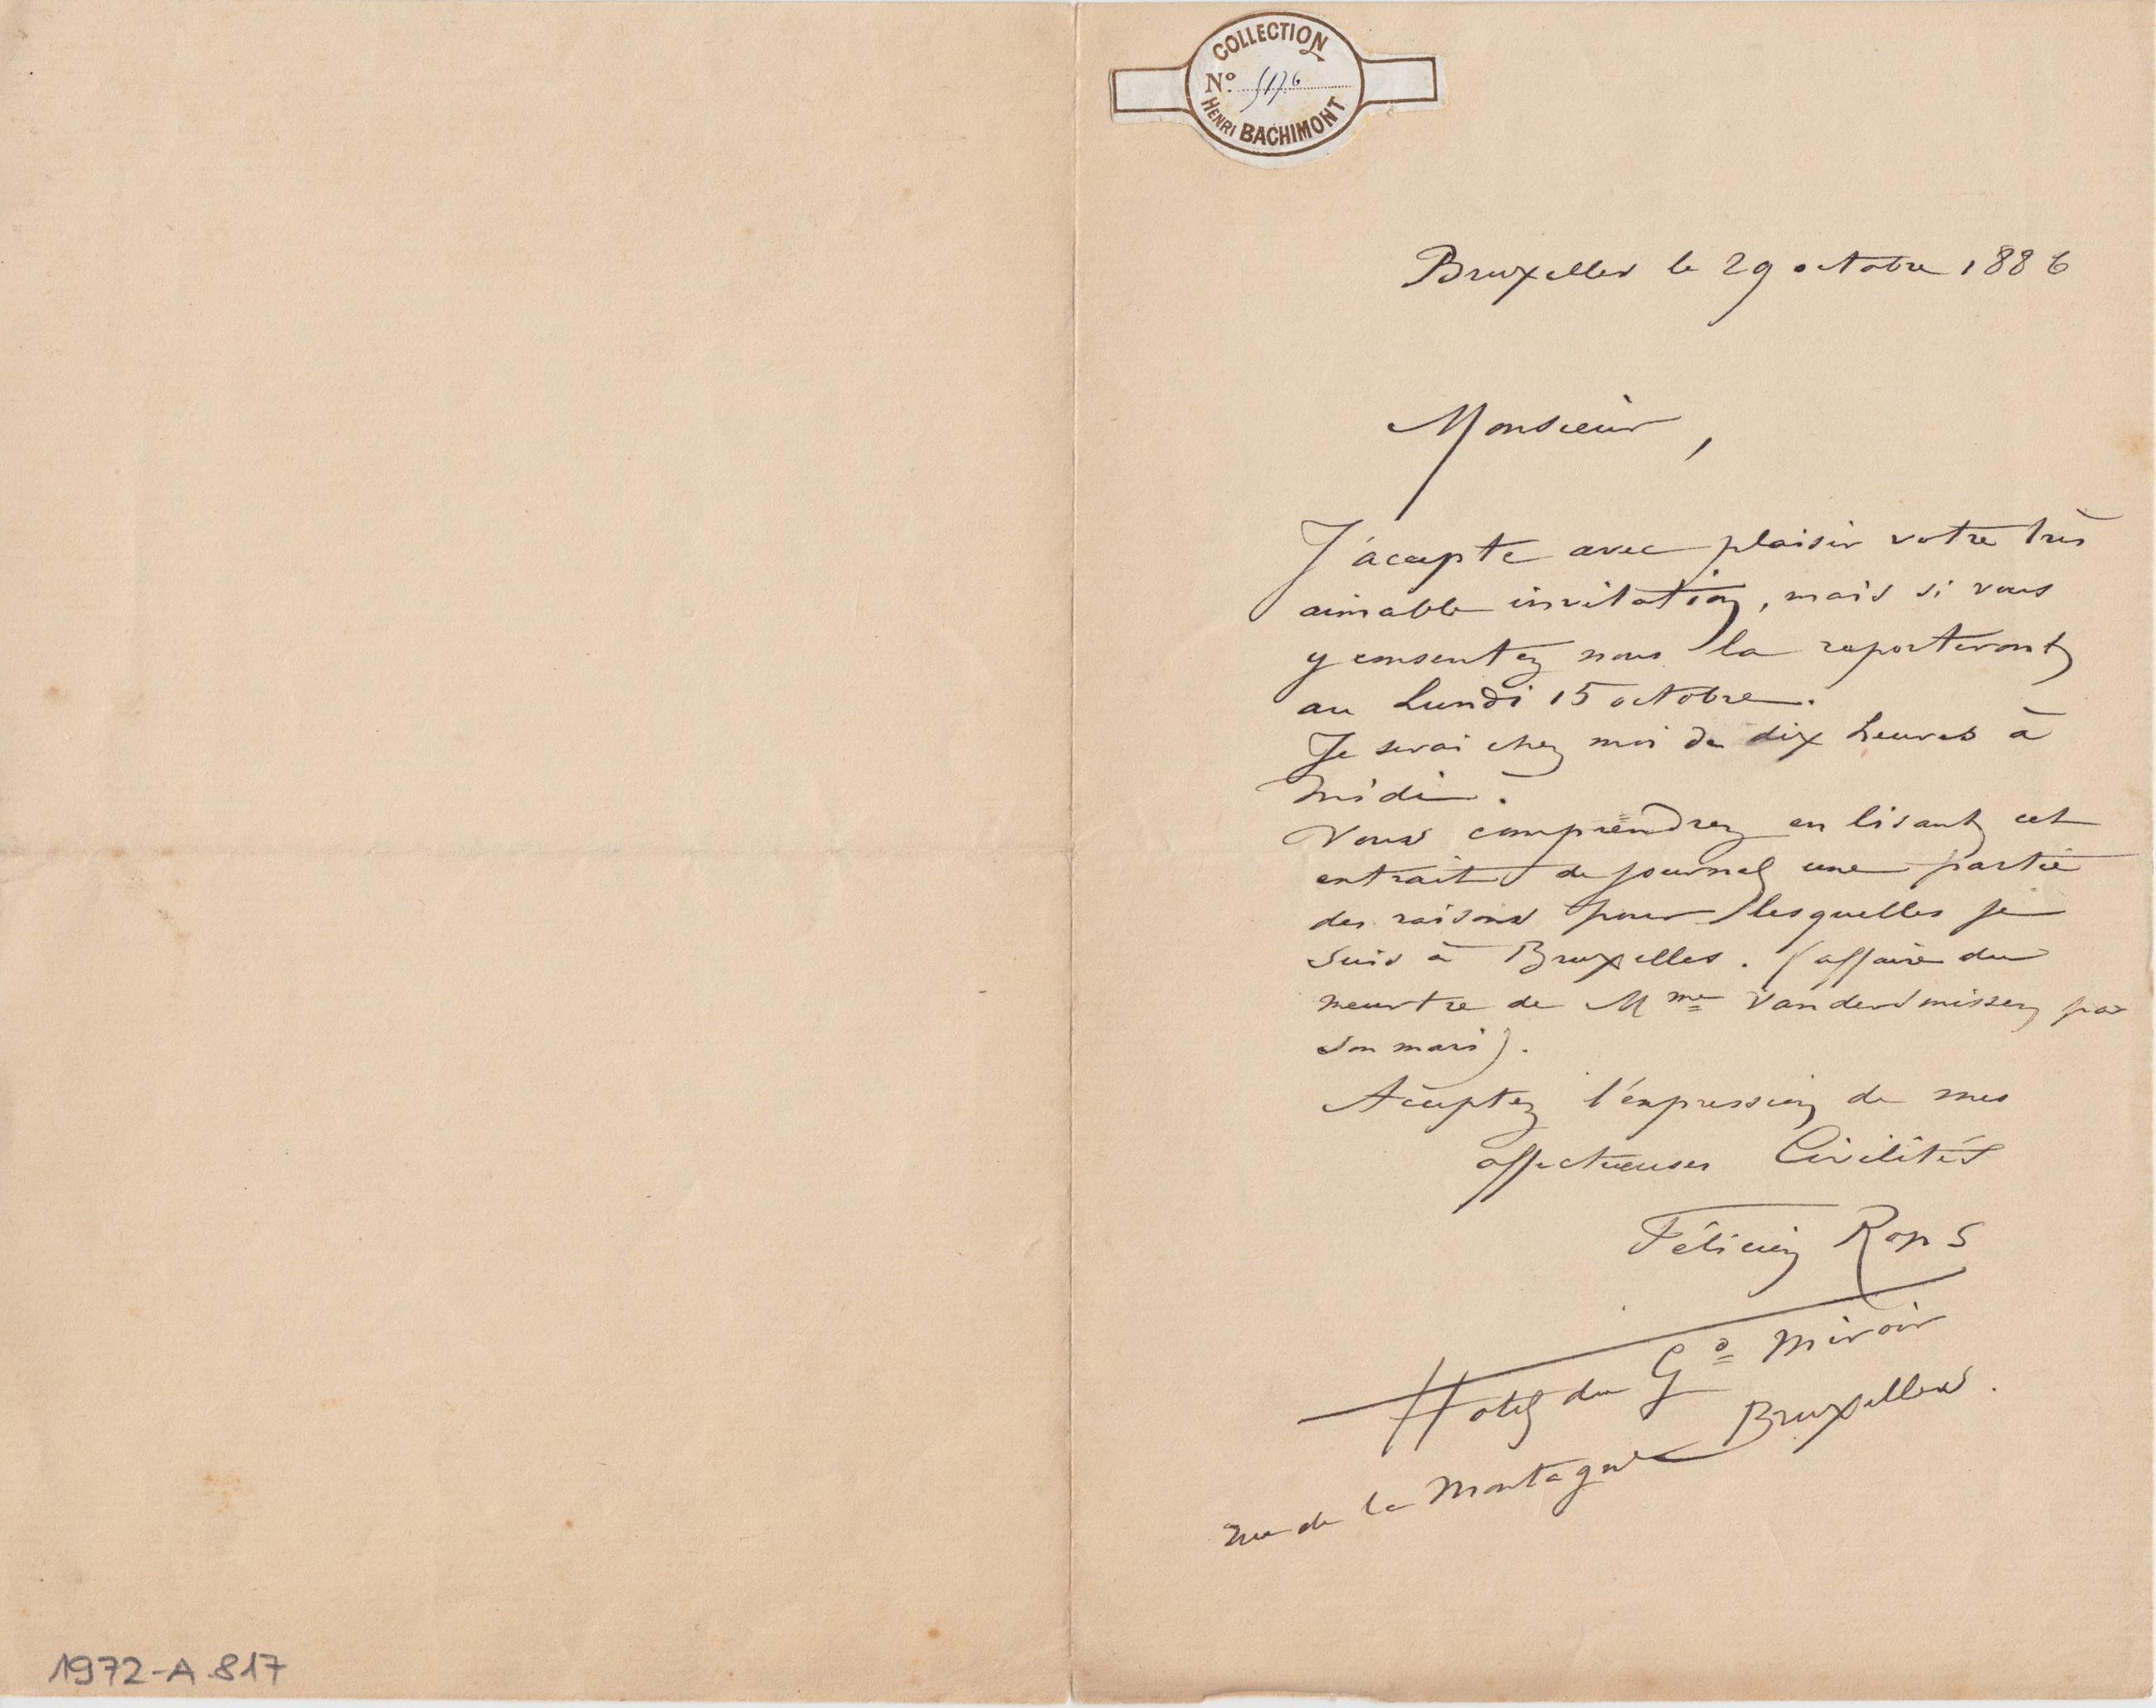 COLLECTION
No.
HENRI BACHIMONT
Bruxelles le 29 octobre 1886
Monsieur,
J'accepte avec plaisir votre très
aimable invitation, mais si vous
y consentez nous la reporteront
au Lundi 15 octobre.
Je serai chez moi de dix heures à
midi.
Vous comprendrez en lisant cet
extrait de journal une partie
des raisons pour lesquelles je
suis à Bruxelles. (affaire du
meurtre de Mme Vandersmissen par
son mari).
Acceptez l'expression de mes
affectueuses Civilités
Félicien Rops
Hotel du Gd Miroir
rue de la Montagne Bruxelles.
1972-A 817